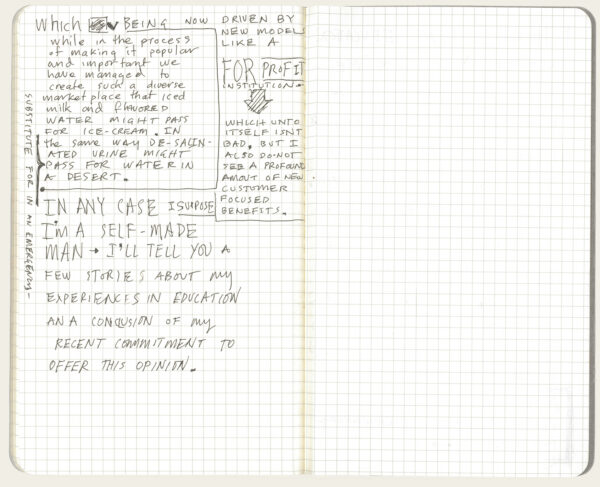 Which BEING NOW
while in the process
of making it popular
and important we
have managed to
create such a diverse
market place that iced
milk and flavored
WATER MIGHT PASS
FOR ICE-CREAM. IN
the same way DE-SALIN-
ATED URINE MIGHT
PASS FOR WATER IN
A DESERT.
SUBSTITUTE FOR IN AN EMERGENCY-
DRIVEN BY
NEW MODELS
LIKE A
FOR PROFIT
INSTITUTION.
WHICH UNTO
ITSELF ISNT
BAD, BUT I
ALSO DO-NOT
SEE A PROFOUND
AMOUT OF NEW
CUSTOMER
FOCUSED
BENEFITS.
IN ANY CASE I SUPPOSE
I'M A SELF-MADE
MAN → I'LL TELL YOU A
FEW STORIES ABOUT MY
EXPERIENCES IN EDUCATION
AN A CONCLUSION OF MY
RECENT COMMITMENT TO
OFFER THIS OPINION.